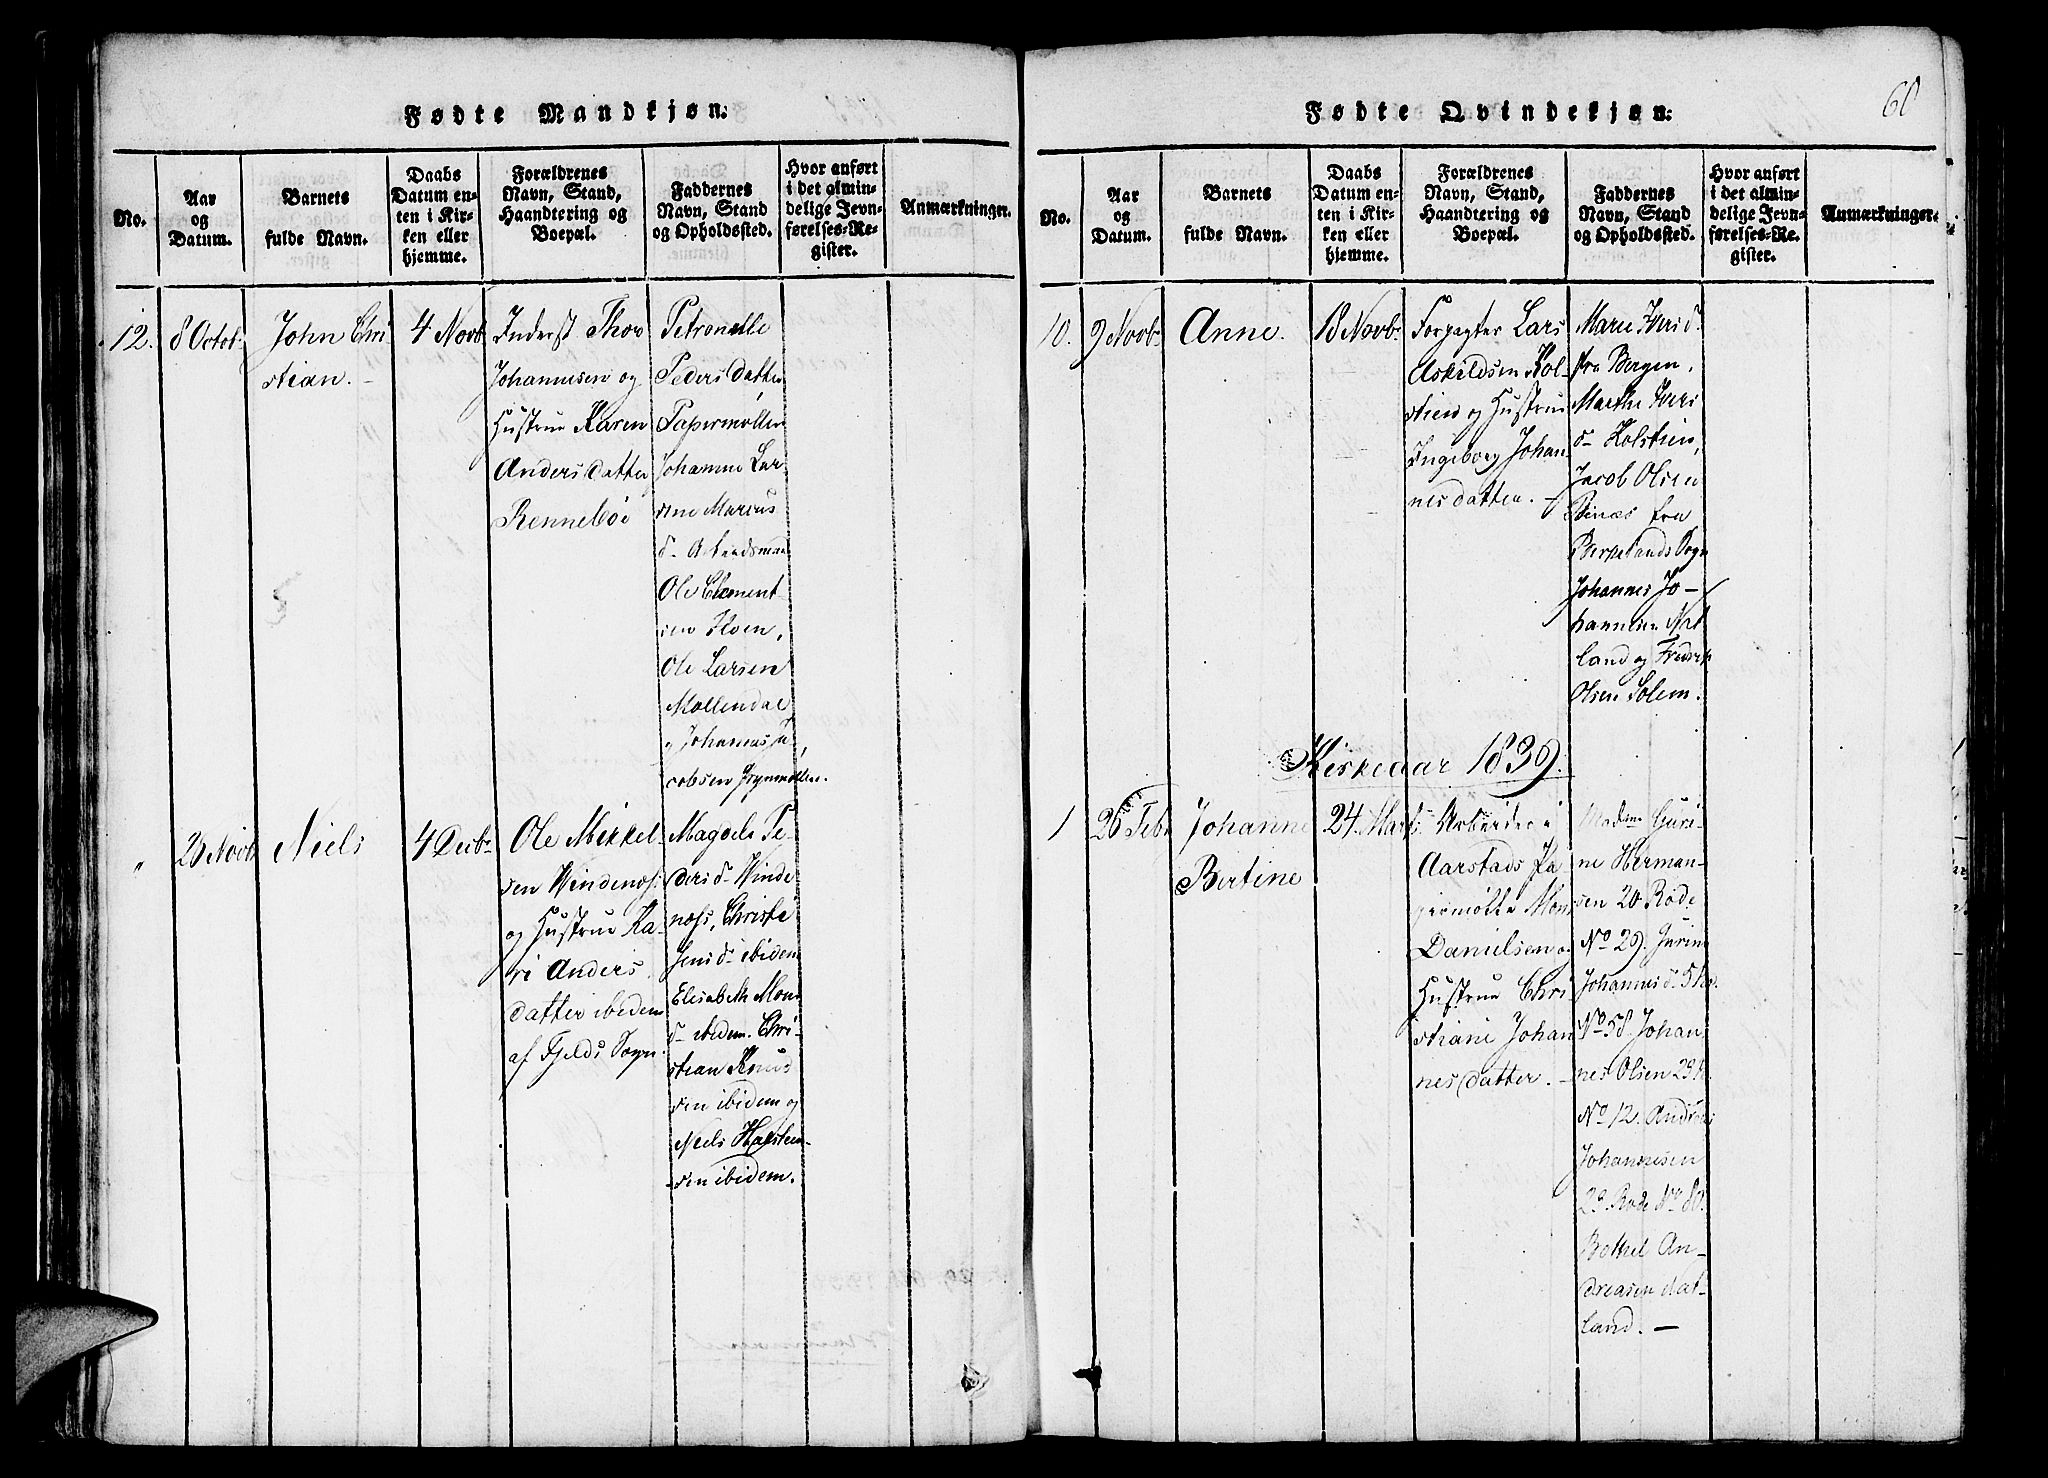 Fødte Mandkjøn.
No.
Aar
og
Datum.
Barnets
fulde Navn.
Daabs
Datum en-
ten i Kir-
ken eller
hjemme.
Forældrenes
Navn, Stand,
Haandtering og
Boepæl.
Faddernes
Navn, Stand
og Opholdssted.
Hvor anført
i det almin-
delige Jevn-
førelses-Re-
gister.
Anmærkninger.
12.
8 Octob.
John Chri
stian.
4 Novb
Inderst Thor
Johannesen og
Hustrue Karen
Andersdatter
Rennebøe
Petronelle
Pedersdatter
Papermøllen
Johanne Lar-
sine Marcus
d.
Ole Clement-
sen Hoen,
Ole Larsen
Møllendal
Johannes Ja-
cobsen
"
23 Novb
Niels
4 Decbr
Ole Mikkel-
sen Windenæs
og Hustrue Ka-
ri Anders
datter ibidem
af Fjelds Sogn.
Magdele Pe-
dersd. Winde
næss, Christe
Jensd. ibidem
Elisabeth Mons
d. ibidem. Chri-
stian Knud
sen ibidem og
Niels
sen ibidem.
Fødte Qvindekjøn.
60
No.
Aar
og
Datum.
Barnets
fulde Navn.
Daabs
Datum en-
ten i Kir-
ken eller
hjemme.
Forældrenes
Navn, Stand,
Haandtering og
Boepæl.
Faddernes
Navn, Stand
og Opholdssted.
Hvor anført
i det almin-
delige Jevn-
førelses-Re-
gister.
Anmærkninger.
10.
9 Novb.
Anne.
18 Novb.
Forpagter Lars
Askildsen Hol-
stien og Hustrue
Ingeborg Johan
nesdatter.
Marie Iversd.
fra Bergen,
Marthe Ivers
d. Holstien,
Jacob Olsen
fra
Birkelands Sogn
Johannes Jo-
hannesen Nat
land og Fredrik
Olsen Solem.
Kirkeaar 1839.
1
26 Feb
Johanne
Bertine
24 Marts
Arbeider i
Aarstads Pa-
permølle Mons
Danielsen og
Hustrue Chri
stiane Johan
nesdatter.
Madme Guri-
ne Herman-
sen 20 Rode
No 29. Gurine
Johannesd. 5
No 58. Johan
nes Olsen 23
No 12. Andreas
Johannesen
23. Rode No 80.
Bothel An-
dreasen Nat-
land.